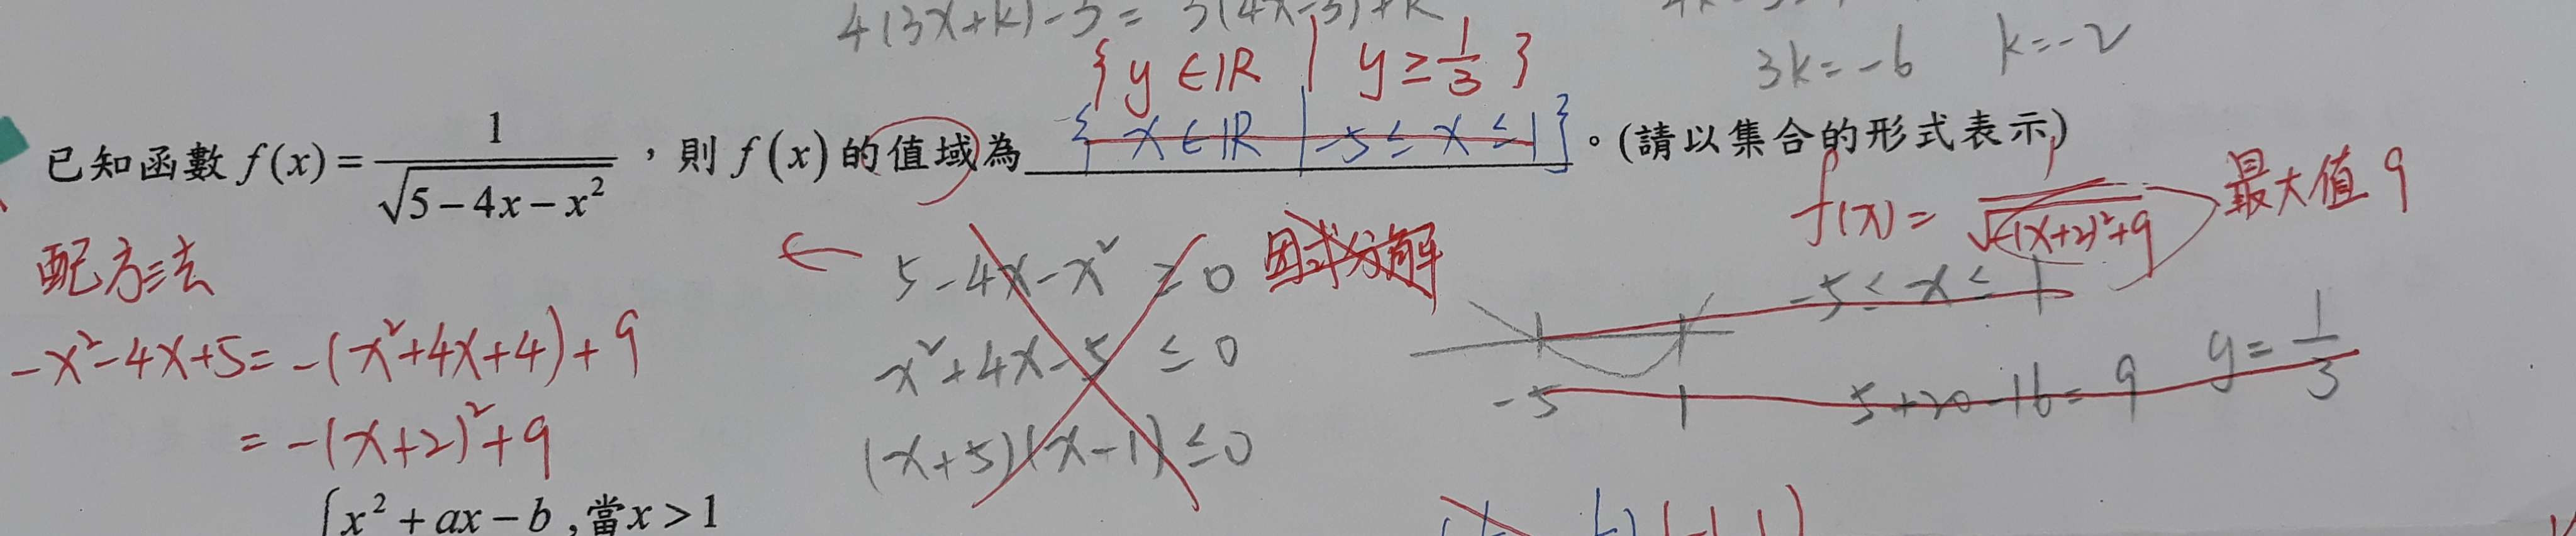 4(3x+k)-3 = 3(4x-3)+k
3k=-6 k=-2
{y∈ℝ | y≥1/3}
已知函數 f(x)=1/√(5-4x-x²),則 f(x) 的值域為 {x∈ℝ | -5≤x≤1}。(請以集合的形式表示)
f(x)=1/√(-(x+2)²+9) 最大值 9
配方法
← 5-4x-x²≥0 因式分解
-5≤x≤1
-x²-4x+5=-(x²+4x+4)+9
x²+4x-5≤0
-5 1 5+20-16=9 y=1/3
=-(x+2)²+9
(x+5)(x-1)≤0
{x²+ax-b,當x>1